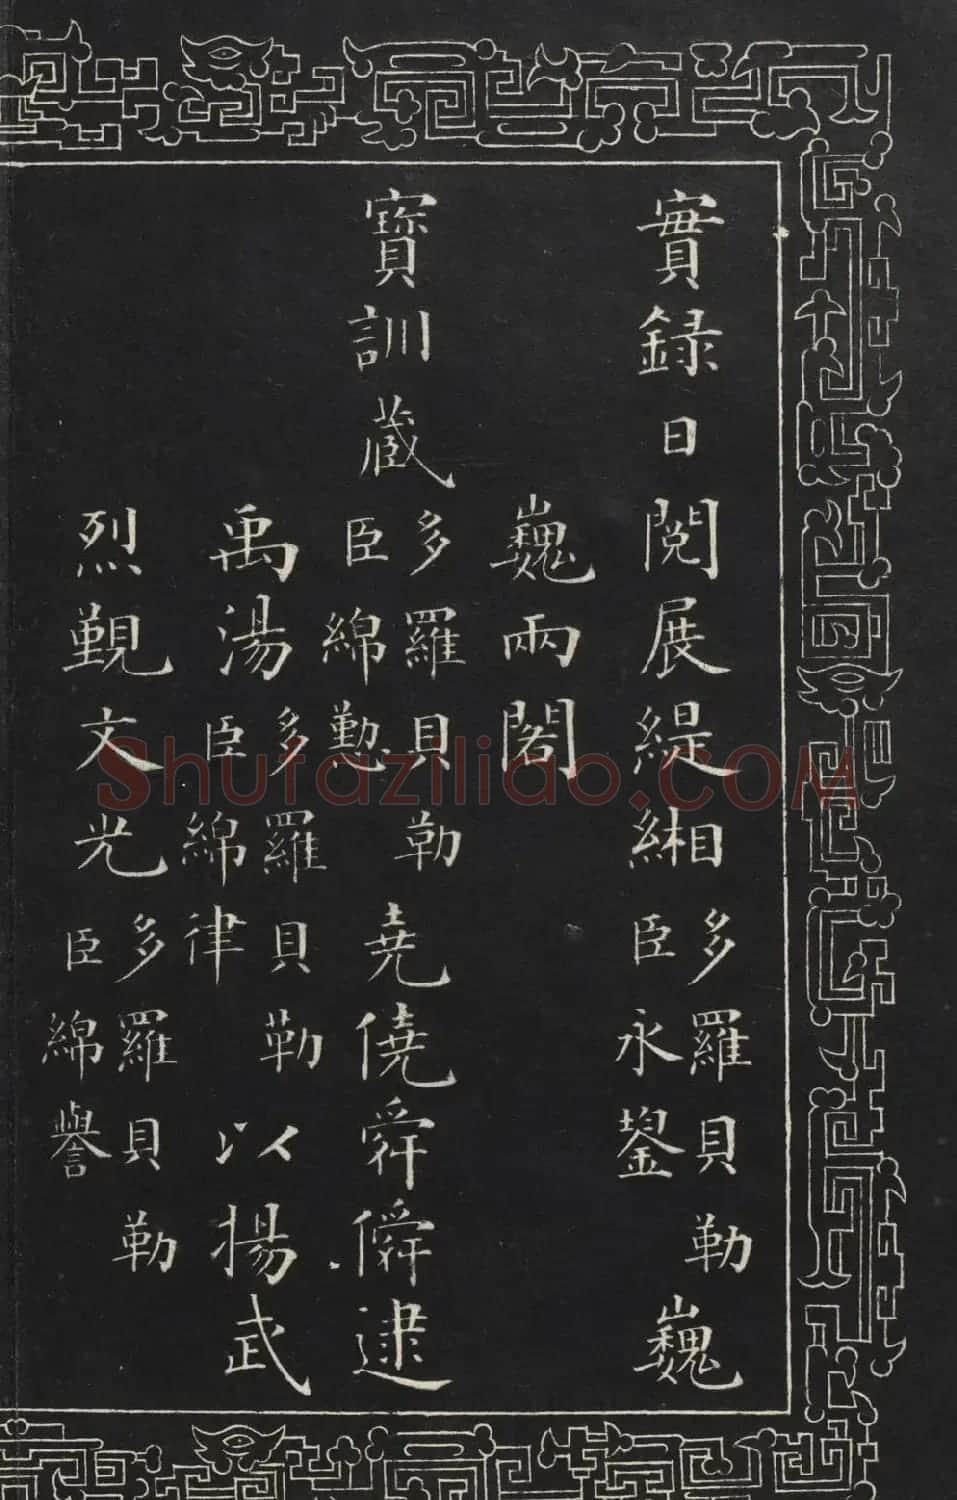 實録日閱展緹緗
多羅貝勒
臣永鋆
巍
巍兩閣
寶訓藏
多羅貝勒
臣綿懃
堯僥舜僢逮
禹湯
多羅貝勒
臣綿律
以揚武
烈覲文光
多羅貝勒
臣綿譽
Shufaziliao.COM